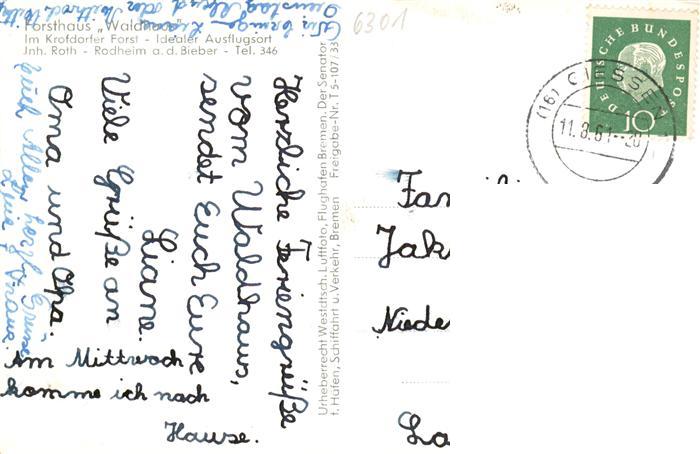 Forsthaus „Waldhaus"
Im Krofdorfer Forst - Idealer Ausflugsort
Jnh. Roth - Rodheim a.d. Bieber - Tel. 346
Herzliche Feriengrüße
vom Waldhaus,
sendet Euch Eure
Liane.
Viele Grüße an
Oma und Opa.
Am Mittwoch
komme ich nach
Hause.
Euch Allen herzl. Grüße
Urheberrecht Westdtsch. Luftfoto, Flughafen Bremen. Der Senator
f. Häfen, Schiffahrt u. Verkehr, Bremen Freigabe-Nr. T 5-107/33
6301
DEUTSCHE BUNDESPOS
10
(16) GIESSEN
11.8.61.--20
Fam
Jak
Niede
La